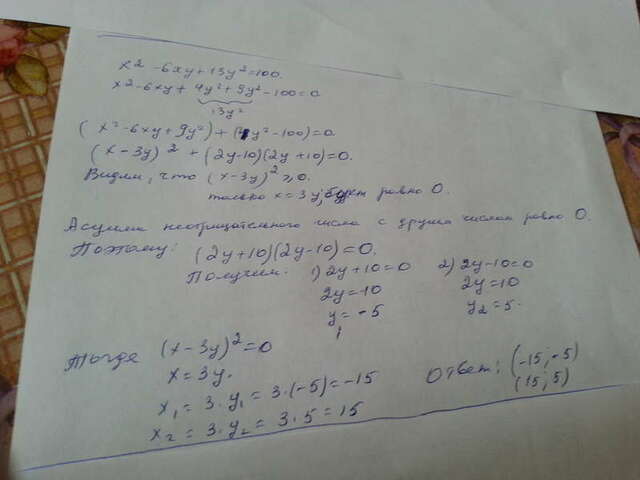 x² - 6xy + 13y² = 100.
x² - 6xy + 4y² + 9y² - 100 = 0
13y²
(x² - 6xy + 9y²) + (4y² - 100) = 0.
(x - 3y)² + (2y - 10)(2y + 10) = 0.
Видим, что (x - 3y)² ≥ 0.
только x = 3y будет равно 0.
А сумма неотрицательного числа с другим числом равно 0.
Поэтому: (2y + 10)(2y - 10) = 0.
Получим: 1) 2y + 10 = 0 2) 2y - 10 = 0
2y = 10 2y = 10
y₁ = -5 y₂ = 5.
Тогда (x - 3y)² = 0
x = 3y.
x₁ = 3·y₁ = 3·(-5) = -15
x₂ = 3·y₂ = 3·5 = 15
Ответ: (-15; -5)
(15; 5)